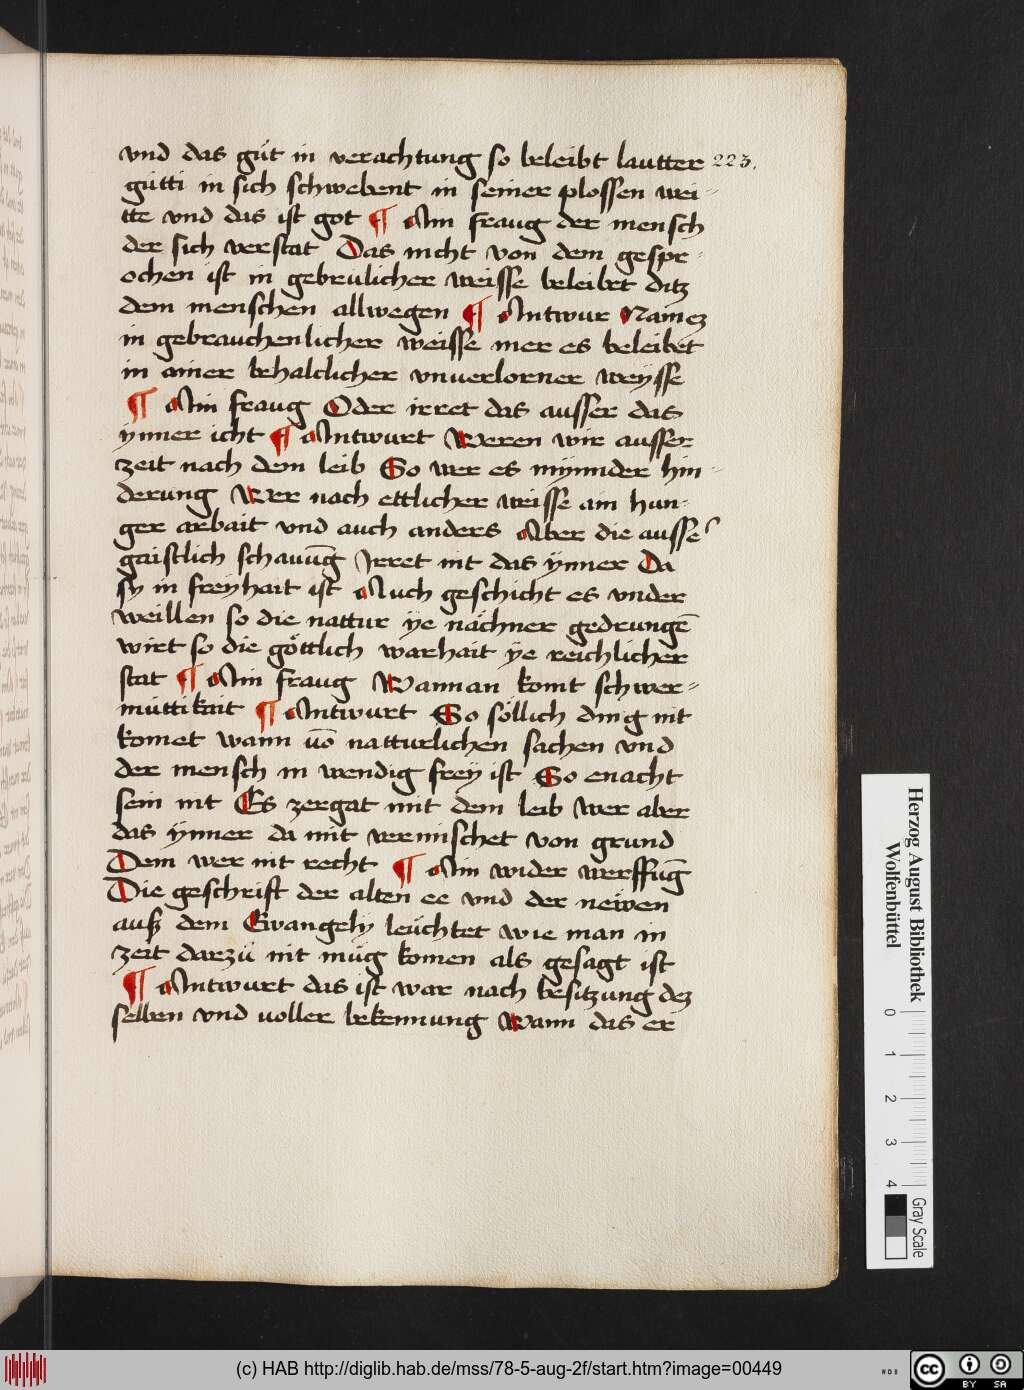 vnd das gůt in verachtung so beleibt lautter 223.
gůtti in sich schwebent in seiner plossen wei-
tte vnd das ist got ¶ Ain fraug der mensch
der sich verstat Das nicht von dem gespr-
ochen ist in gebreulicher weisse beleibet ditz
dem menschen allwegen ¶ Antwur Namez
in gebrauchenlicher weisse mer es beleibet
in ainer behaldlicher vnuerlorner weysse
¶ Ain fraug Oder irret das ausser das
ynner icht ¶ Antwurt Weren wir ausser
zeit nach dem leib So wer es mynnder hin-
derung Wer nach ettlicher weisse am hun-
ger arbait vnd auch anders Aber die ausse
gaistlich schauūg Irret nit das ynner Da
sy in freyhait ist Auch geschicht es vnder
weillen so die nattur ye nächner gedrungē
wirt so die göttlich warhait ye reichlicher
stat ¶ Ain fraug Wannan komt schwer-
müttikait ¶ Antwurt So söllich ding nit
komet wann vō natturlichen sachen vnd
der mensch in wendig frey ist So enacht
sein nit Es zergat mit dem leib wer aber
das ynner da mit vermischet von grund
Dem wer nit recht ¶ Ain wider werffūg
Die geschrift der alten ee vnd der newen
auß dem Ewangely leüchtet wie man in
zeit darzů nit müg komen als gesagt ist
¶ Antwurt das ist war nach besitzung dez
selben vnd voller bekennung Wann das er
Herzog August Bibliothek
Wolfenbüttel
0 1 2 3 4
Gray Scale
(c) HAB http://diglib.hab.de/mss/78-5-aug-2f/start.htm?image=00449
WDB
cc BY SA